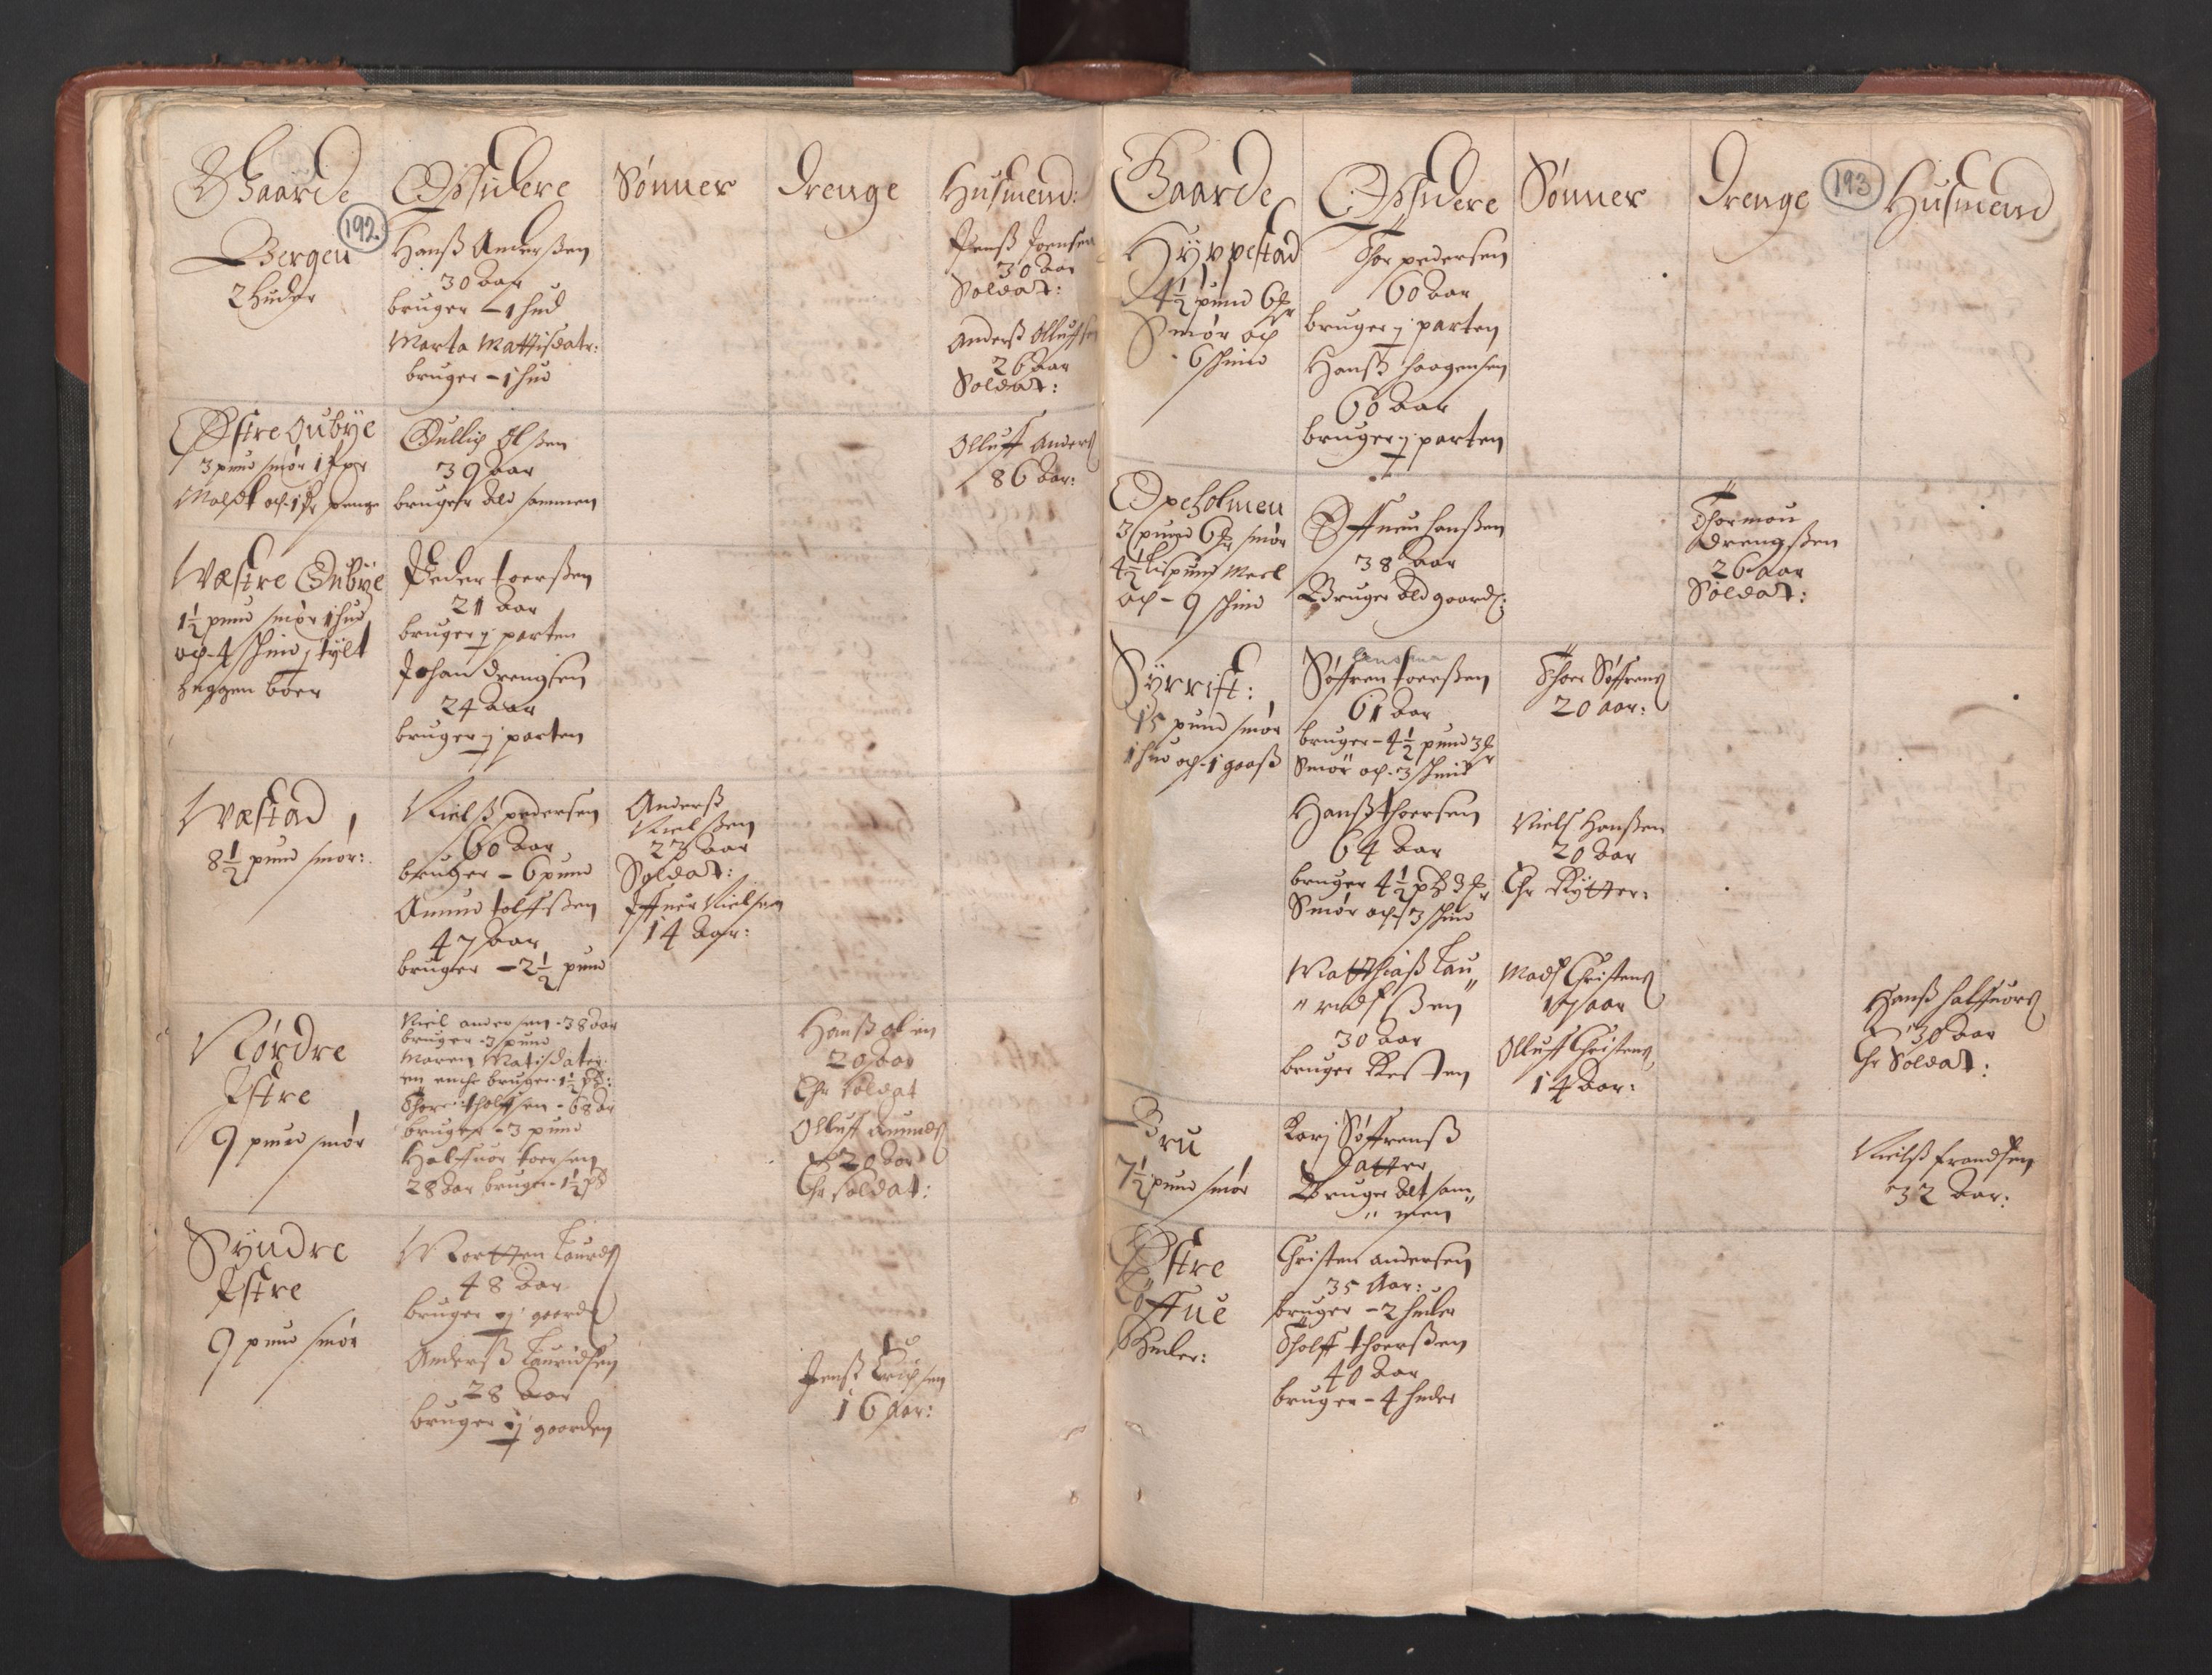 Gaarde
Opsidere
Sønner
Drenge
Husmend:
192.
Bergen
2 huder
Hanß Anderßen
30 Aar
bruger - 1 hud
Marta Mattisdatr:
bruger - 1 hud
Jenß Joensen
30 Aar
Soldat:
Anderß Olluffsen
26 Aar
Soldat:
Østre Aubye
3 pund smør 1
Maldt och 1 penge
Gullich Olßen
39 Aar
bruger Ald sammen
Olluff Anders
86 Aar:
Wæstre Aubye
1½ pund smør 1 hud
och 4 skind j tylt
heggen boer
Peder toerßen
21 Aar
bruger j parten
Johan Drengsen
24 Aar
bruger j parten
Wæstad
8½ pund smør:
Nielß pedersen
60 Aar
bruger - 6 pund
Amund tolffßen
47 Aar
bruger - 2½ pund
Anderß
Nielßen
23 Aar
Soldat:
Iffuer Nielsen
14 Aar:
Nørdre
Istre
9 pund smør
Niel andersen - 38 aar
bruger - 3 pund
Maren Matisdater
en enche bruger - 1½
Thore tholffsen - 68 Ar
bruger - 3 pund
Halffuor toersen
28 Aar bruger - 1½
Hanß olsen
20 Aar
Ehr soldat
Olluff Amunds
20 Aar
Ehr soldat:
Syndre
Istre
9 pund smør
Mortten Laurds
48 Aar
bruger j gaarde
Anderß Lauridsen
28 Aar
bruger j gaarden
Jenß Erichsen
16 Aar:
Gaarde
Opsidere
Sønner
Drenge
193
Husmend
Hyppestad
4½ pund 6
Smør och
6 skind
Thor pedersen
60 Aar
bruger j parten
Hanß haagensen
60 Aar
bruger j parten
Opeholmen
3 pund 6 smør
4½ lispund Meel
och - 9 skind
Effuen hanßen
38 Aar
Bruger Ald gaard:
Thormou
Drengßen
26 aar
Soldat:
Syrrist:
15 pund smør
1 hud och 1 gaaß
Søffren toerßen
61 Aar
bruger - 4½ pund 3
Smør och 3 skind
Thoer Søffrens
20 Aar:
Hanß thoersen
64 Aar
bruger 4½ 3
Smør och 3 skind
Niels Hanßen
20 Aar
Ehr Rytter:
Matthiaß Lau„
„ridsßen
30 Aar
bruger Resten
Mads Christens
17 Aar
Olluff Christens
14 Aar:
Hanß halffuors
30 Aar
Ehr Soldat:
Bru
7½ pund smør
Karj Søffrenß
Datter
Bruger Alt sam„
„men
Nielß frandsen
32 Aar:
Østre
Huder:
Christen andersen
35 Aar:
bruger - 2 huder
Tholff thoerßen
40 Aar
bruger - 4 huder